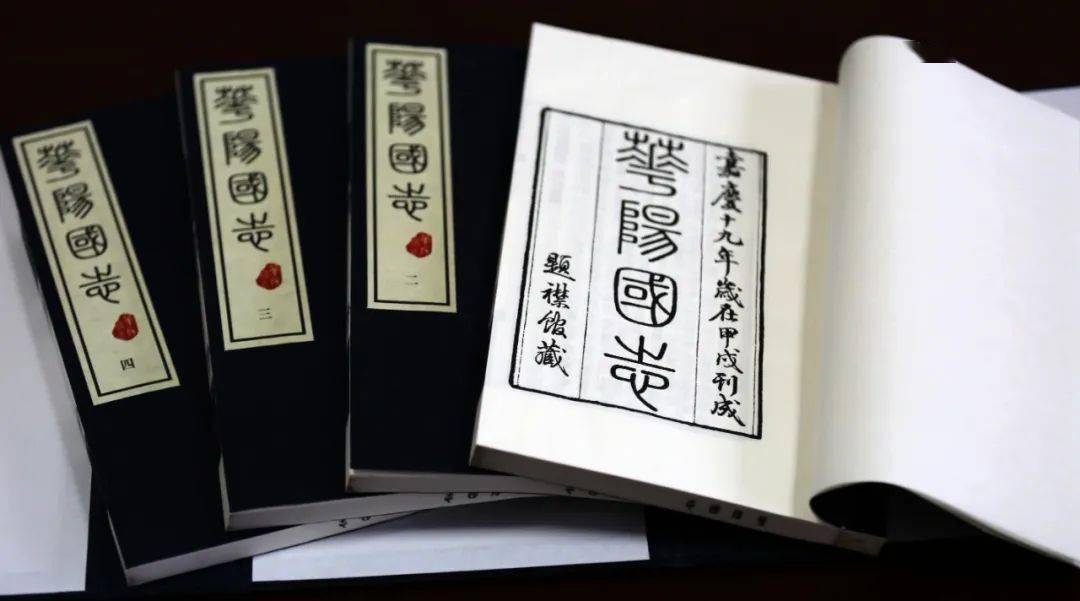 嘉慶十九年歲在甲戌刊成
華陽國志
題襟館藏
華陽國志
二
華陽國志
三
華陽國志
四